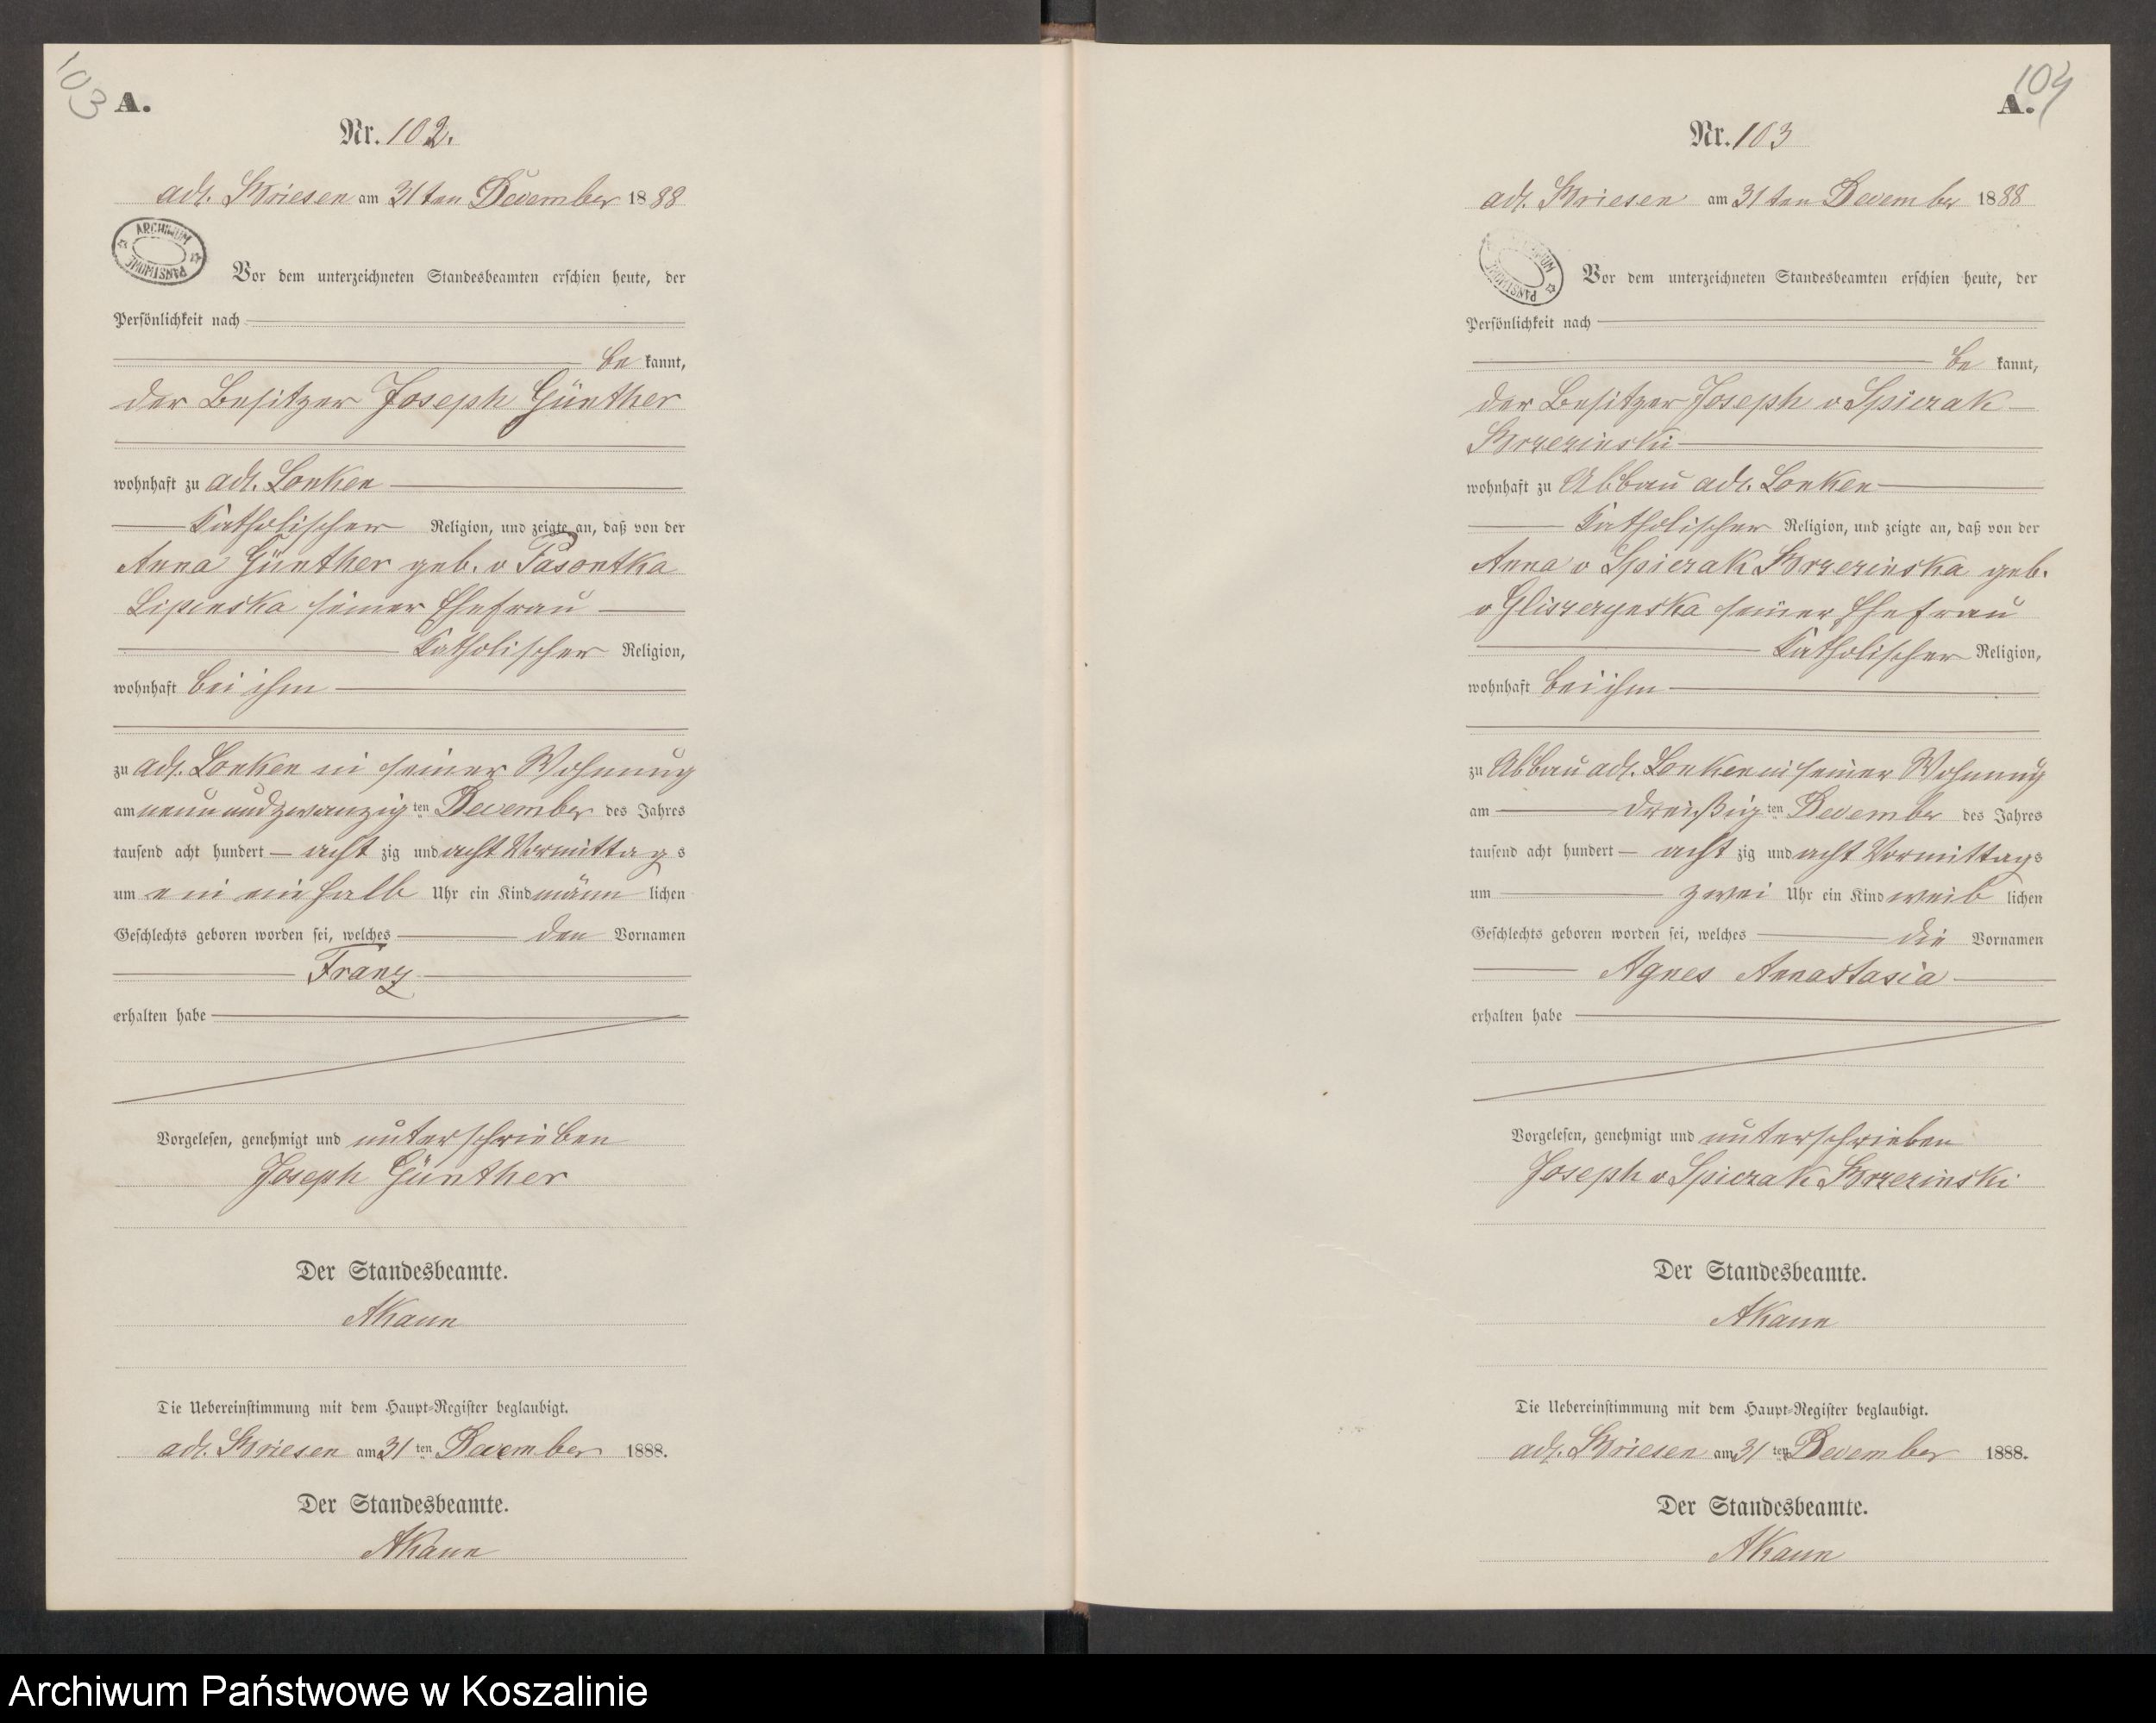 103
A.
Nr. 102.
adl. Briesen am 31 ten December 1888
ARCHIWUM PAŃSTWOWE
Vor dem unterzeichneten Standesbeamten erschien heute, der
Persönlichkeit nach
be kannt,
der Besitzer Joseph Günther
wohnhaft zu adl. Lonken
Katholischer Religion, und zeigte an, daß von der
Anna Günther geb. v
Lipinska seiner Ehefrau
Katholischer Religion,
wohnhaft bei ihm
zu adl. Lonken in seiner Wohnung
am neunundzwanzig ten December des Jahres
tausend acht hundert acht zig und acht Vormittags
um ein einhalb Uhr ein Kind männ lichen
Geschlechts geboren worden sei, welches den Vornamen
Franz
erhalten habe
Vorgelesen, genehmigt und unterschrieben
Joseph Günther
Der Standesbeamte.
AKaun
Die Uebereinstimmung mit dem Haupt-Register beglaubigt.
adl. Briesen am 31 ten December 1888.
Der Standesbeamte.
AKaun
104
A.
Nr. 103
adl. Briesen am 31 ten December 1888
Vor dem unterzeichneten Standesbeamten erschien heute, der
Persönlichkeit nach
be kannt,
der Besitzer Joseph v Spiczak
Brzezinski
wohnhaft zu Abbau adl. Lonken
Katholischer Religion, und zeigte an, daß von der
Anna v Spiczak Brzezinska geb.
v Gliszczynska seiner Ehefrau
Katholischer Religion,
wohnhaft bei ihm
zu Abbau adl. Lonken in seiner Wohnung
am dreißig ten December des Jahres
tausend acht hundert acht zig und acht Vormittags
um zwei Uhr ein Kind weib lichen
Geschlechts geboren worden sei, welches die Vornamen
Agnes Annastasia
erhalten habe
Vorgelesen, genehmigt und unterschrieben
Joseph v Spiczak Brzezinski
Der Standesbeamte.
AKaun
Die Uebereinstimmung mit dem Haupt-Register beglaubigt.
adl. Briesen am 31 ten December 1888.
Der Standesbeamte.
AKaun
Archiwum Państwowe w Koszalinie